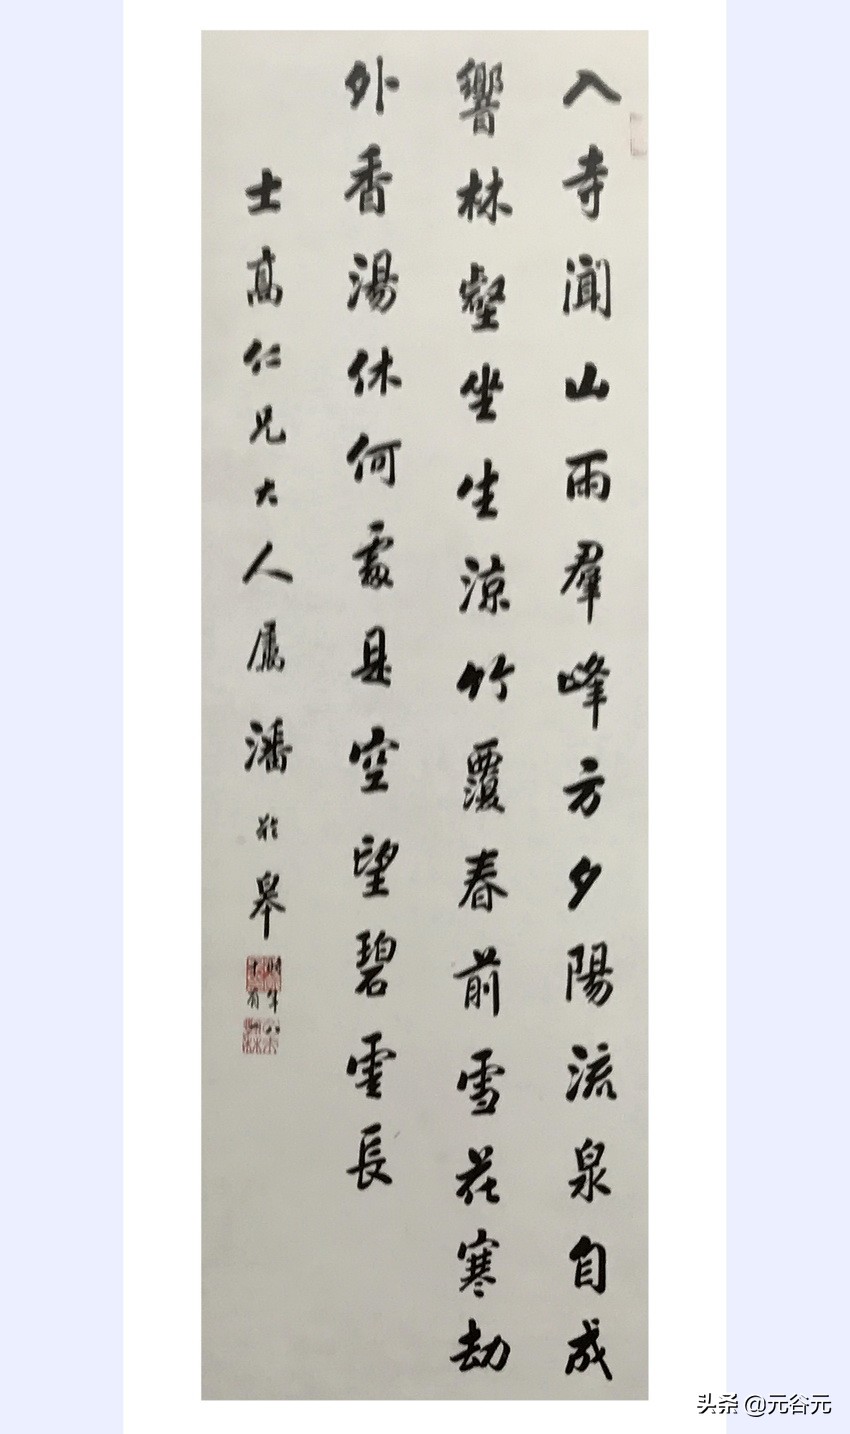 入寺聞山雨羣峰方夕陽流泉自成
響林壑坐生涼竹覆春前雪花寒劫
外香湯休何處是空望碧雲長
士高仁兄大人屬 潘齡皋
時年八
十有
头条 @元谷元